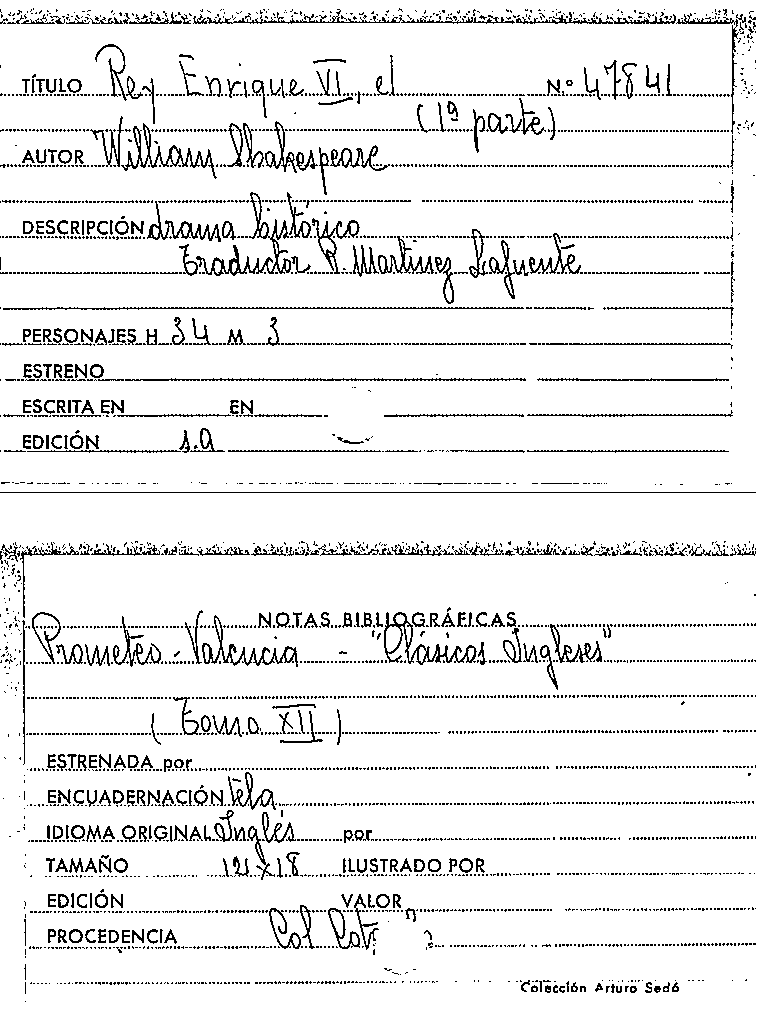 TÍTULO Rey Enrique VI, el Nº 47841
(1ª parte)
AUTOR William Shakespeare
DESCRIPCIÓN drama histórico
Traductor R. Martinez Lafuente
PERSONAJES H 34 M 3
ESTRENO
ESCRITA EN EN
EDICIÓN s.a
NOTAS BIBLIOGRÁFICAS
Prometeo - Valencia - "Clásicos Ingleses"
(Tomo XII)
ESTRENADA por
ENCUADERNACIÓN tela
IDIOMA ORIGINAL Inglés por
TAMAÑO 12x18 ILUSTRADO POR
EDICIÓN VALOR
PROCEDENCIA Col
Colección Arturo Sedó